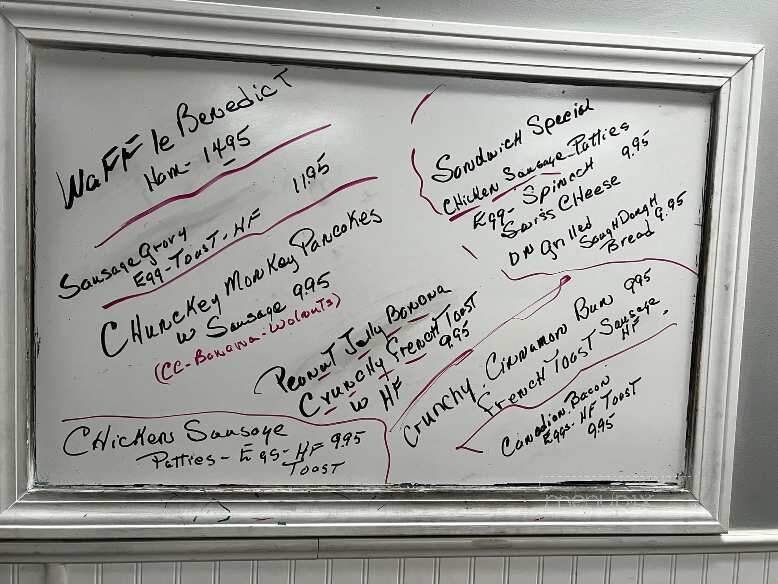 WaFFle BenedicT
Ham- 14.95
Sausage Gravy 11.95
Egg-Toast-HF
CHuncKey MonKey Pancakes
w Sausage 9.95
(CC-Banana-Walnuts)
Peanut Jelly Banana
Crunchy French Toast
w HF 9.95
CHicken Sausage
Patties - Eggs- HF 9.95
Toast
Sandwich Special
CHicken Sausage Patties
Egg- Spinach 9.95
Swiss CHeese
on grilled SoughDough
Bread 9.95
Crunchy Cinnamon Bun 9.95
French Toast Sausage
HF
Canadian Bacon
Eggs- HF Toast
9.95
menupix